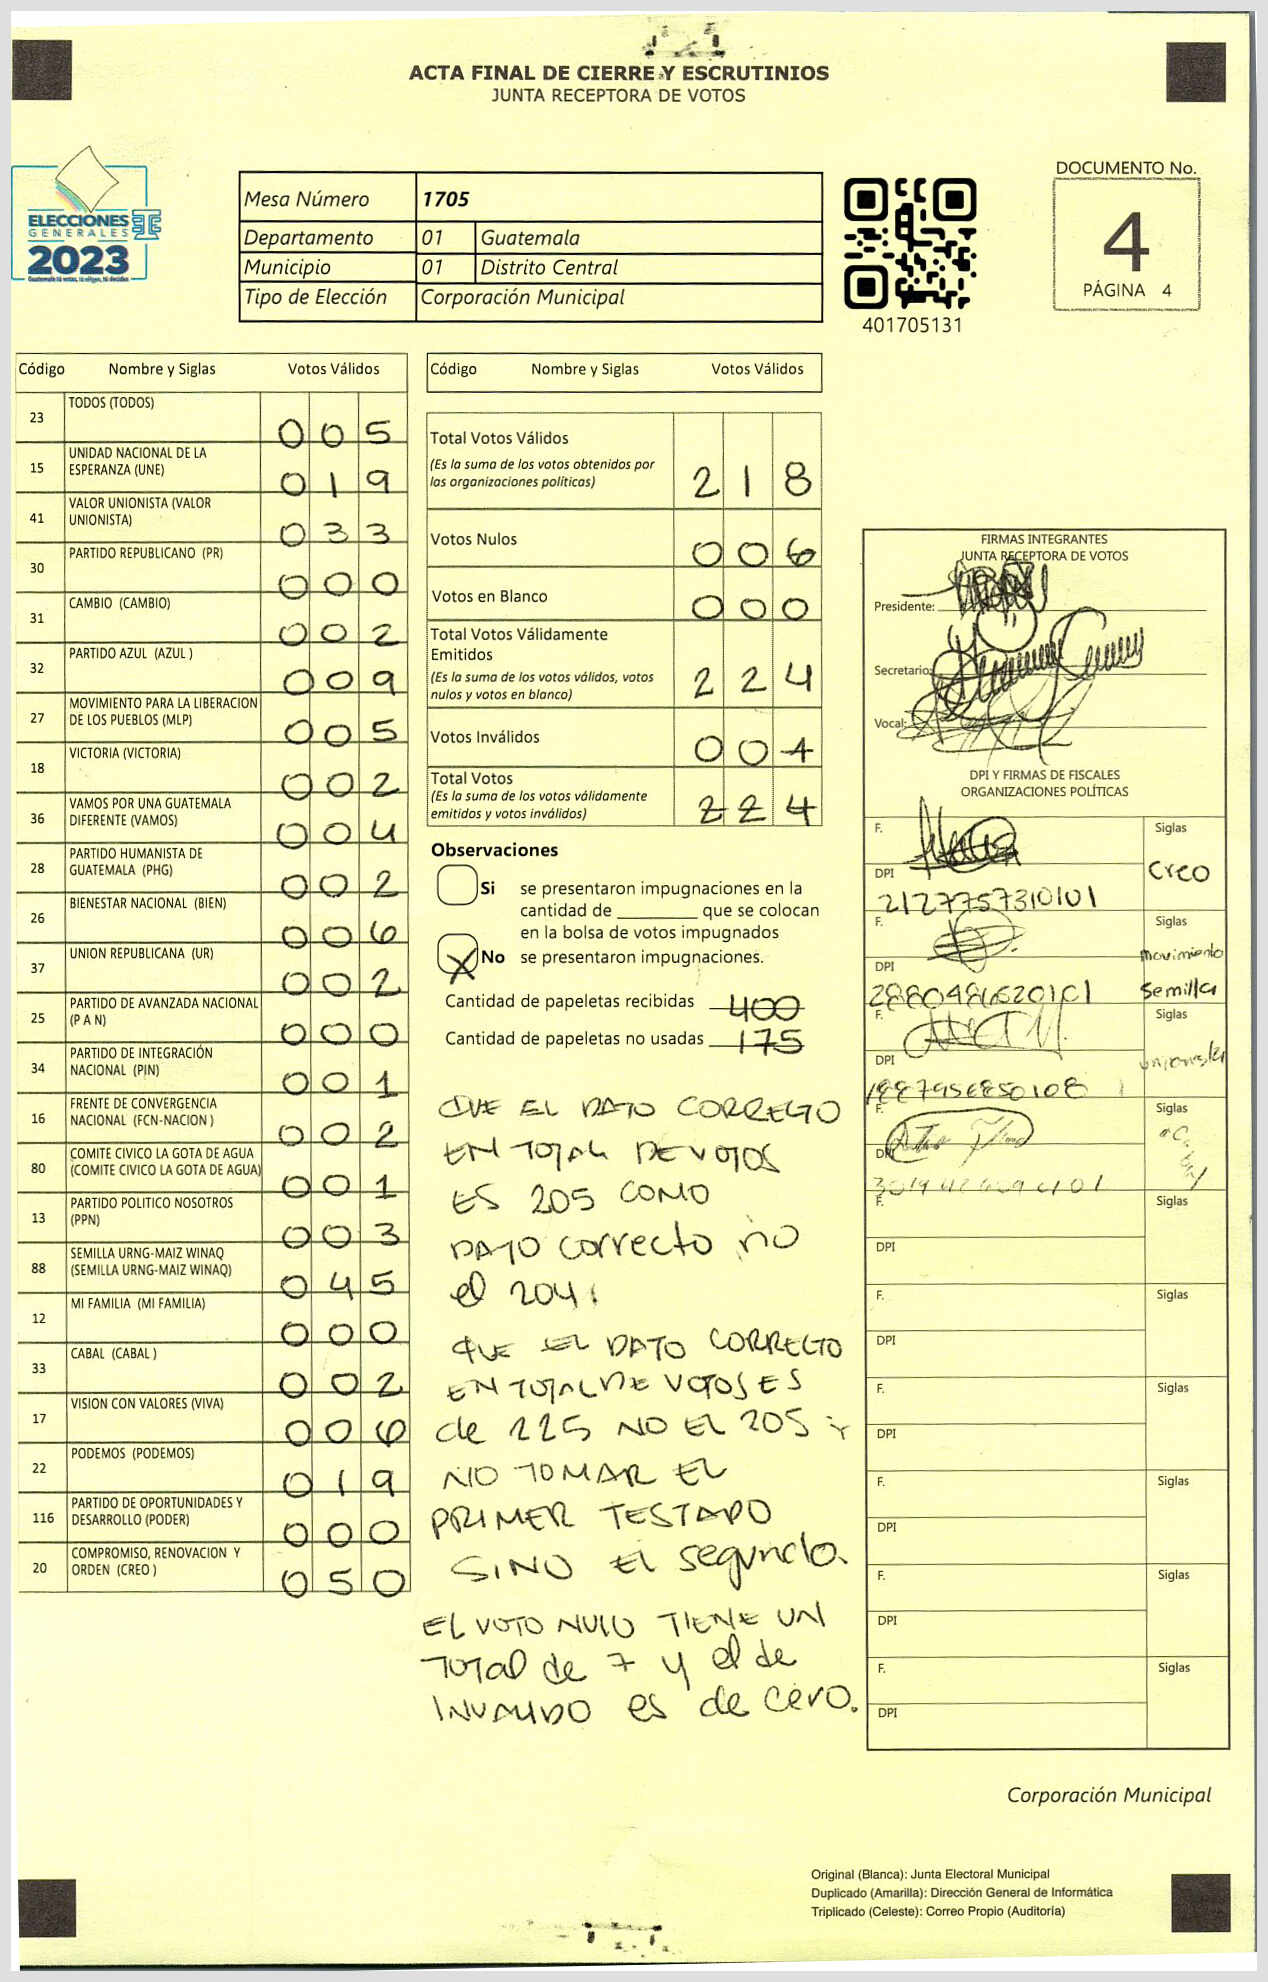 ACTA FINAL DE CIERRE Y ESCRUTINIOS
JUNTA RECEPTORA DE VOTOS
ELECCIONES
GENERALES
2023
Guatemala tú votas, tú eliges, tú decides
Mesa Número 1705
Departamento 01 Guatemala
Municipio 01 Distrito Central
Tipo de Elección Corporación Municipal
401705131
DOCUMENTO No.
4
PÁGINA 4
Código Nombre y Siglas Votos Válidos
23 TODOS (TODOS) 005
15 UNIDAD NACIONAL DE LA
ESPERANZA (UNE) 019
41 VALOR UNIONISTA (VALOR
UNIONISTA) 033
30 PARTIDO REPUBLICANO (PR) 000
31 CAMBIO (CAMBIO) 002
32 PARTIDO AZUL (AZUL ) 009
27 MOVIMIENTO PARA LA LIBERACION
DE LOS PUEBLOS (MLP) 005
18 VICTORIA (VICTORIA) 002
36 VAMOS POR UNA GUATEMALA
DIFERENTE (VAMOS) 004
28 PARTIDO HUMANISTA DE
GUATEMALA (PHG) 002
26 BIENESTAR NACIONAL (BIEN) 006
37 UNION REPUBLICANA (UR) 002
25 PARTIDO DE AVANZADA NACIONAL
(P A N) 000
34 PARTIDO DE INTEGRACIÓN
NACIONAL (PIN) 001
16 FRENTE DE CONVERGENCIA
NACIONAL (FCN-NACION ) 002
80 COMITE CIVICO LA GOTA DE AGUA
(COMITE CIVICO LA GOTA DE AGUA) 001
13 PARTIDO POLITICO NOSOTROS
(PPN) 003
88 SEMILLA URNG-MAIZ WINAQ
(SEMILLA URNG-MAIZ WINAQ) 045
12 MI FAMILIA (MI FAMILIA) 000
33 CABAL (CABAL ) 002
17 VISION CON VALORES (VIVA) 006
22 PODEMOS (PODEMOS) 019
116 PARTIDO DE OPORTUNIDADES Y
DESARROLLO (PODER) 000
20 COMPROMISO, RENOVACION Y
ORDEN (CREO ) 050
Código Nombre y Siglas Votos Válidos
Total Votos Válidos
(Es la suma de los votos obtenidos por
las organizaciones políticas) 218
Votos Nulos 006
Votos en Blanco 000
Total Votos Válidamente
Emitidos
(Es la suma de los votos válidos, votos
nulos y votos en blanco) 224
Votos Inválidos 004
Total Votos
(Es la suma de los votos válidamente
emitidos y votos inválidos) 224
Observaciones
Si se presentaron impugnaciones en la
cantidad de ________ que se colocan
en la bolsa de votos impugnados
X No se presentaron impugnaciones.
Cantidad de papeletas recibidas 400
Cantidad de papeletas no usadas 175
QUE EL DATO CORRECTO
EN TOTAL DE VOTOS
ES 205 COMO
DATO correcto no
el 204.
QUE EL DATO CORRECTO
EN TOTAL DE VOTOS ES
de 225 NO EL 205 Y
NO TOMAR EL
PRIMER TESTADO
SINO El segundo.
EL VOTO NULO TIENE UN
TOTAL de 7 y el de
INVALIDO es de cero.
FIRMAS INTEGRANTES
JUNTA RECEPTORA DE VOTOS
Presidente:
Secretario:
Vocal:
DPI Y FIRMAS DE FISCALES
ORGANIZACIONES POLÍTICAS
F. Siglas
Creo
DPI
2127757310101
F. Siglas
movimiento
DPI
Semilla
F. Siglas
DPI
unionista
F. Siglas
DPI
F. Siglas
DPI
F. Siglas
DPI
F. Siglas
DPI
F. Siglas
DPI
F. Siglas
DPI
F. Siglas
DPI
Corporación Municipal
Original (Blanca): Junta Electoral Municipal
Duplicado (Amarilla): Dirección General de Informática
Triplicado (Celeste): Correo Propio (Auditoría)